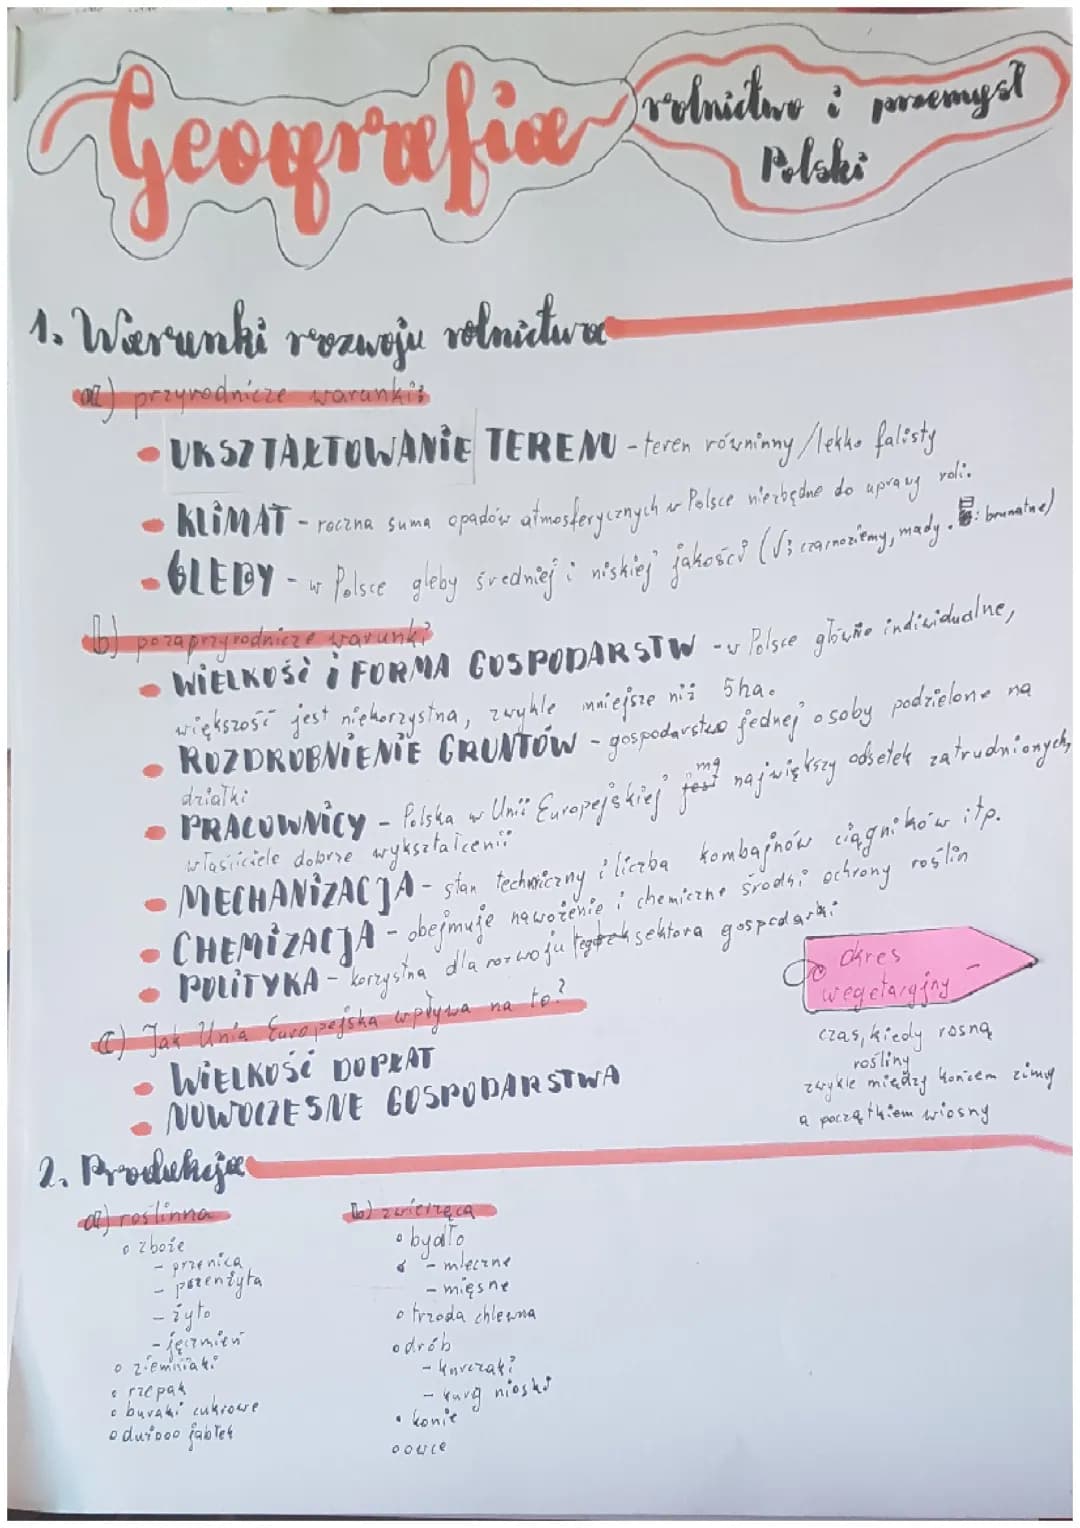 Geografia
rolnictwo i przemysł
Polski
1. Warunki rozwoju rolnictwa
a) przyrodnicze warunki:
• UKSZTAŁTOWANIE TERENU - teren równinny/lekko falisty
• KLIMAT - roczna suma opadów atmosferycznych w Polsce niezbędne do uprawy roli.
• GLEBY - w Polsce gleby średniej i niskiej jakości (V: czarnoziemy, mady. : brunatne)
b) pozaprzyrodnicze warunki
• WIELKOŚĆ i FORMA GOSPODARSTW - w Polsce głównie indywidualne,
większość jest niekorzystna, zwykle mniejsze niż 5ha.
• ROZDROBNIENIE GRUNTÓW - gospodarstwo jednej osoby podzielone na
działki
• PRACOWNICY - Polska w Unii Europejskiej ma największy odsetek zatrudnionych,
właściciele dobrze wykształcenii
• MECHANIZACJA - stan techniczny i liczba kombajnów ciągników itp.
• CHEMIZACJA - obejmuje nawożenie i chemiczne środki ochrony roślin
• POLITYKA - korzystna dla rozwoju sektora gospodarki
c) Jak Unia Europejska wpływa na to?
• WIELKOŚĆ DOPŁAT
• NOWOCZESNE GOSPODARSTWA
okres
wegetacyjny -
czas, kiedy rosną
rośliny
zwykle między końcem zimy
a początkiem wiosny
2. Produkcja
a) roślinna
o zboże
- przenica
- pszenżyta
- żyto
- jęczmień
o ziemniaki
o rzepak
o buraki cukrowe
o dużooo jabłek
b) zwierzęca
o bydło
- mleczne
- mięsne
o trzoda chlewna
o drób
- kurczaki
- kury nioski
• konie
o owce